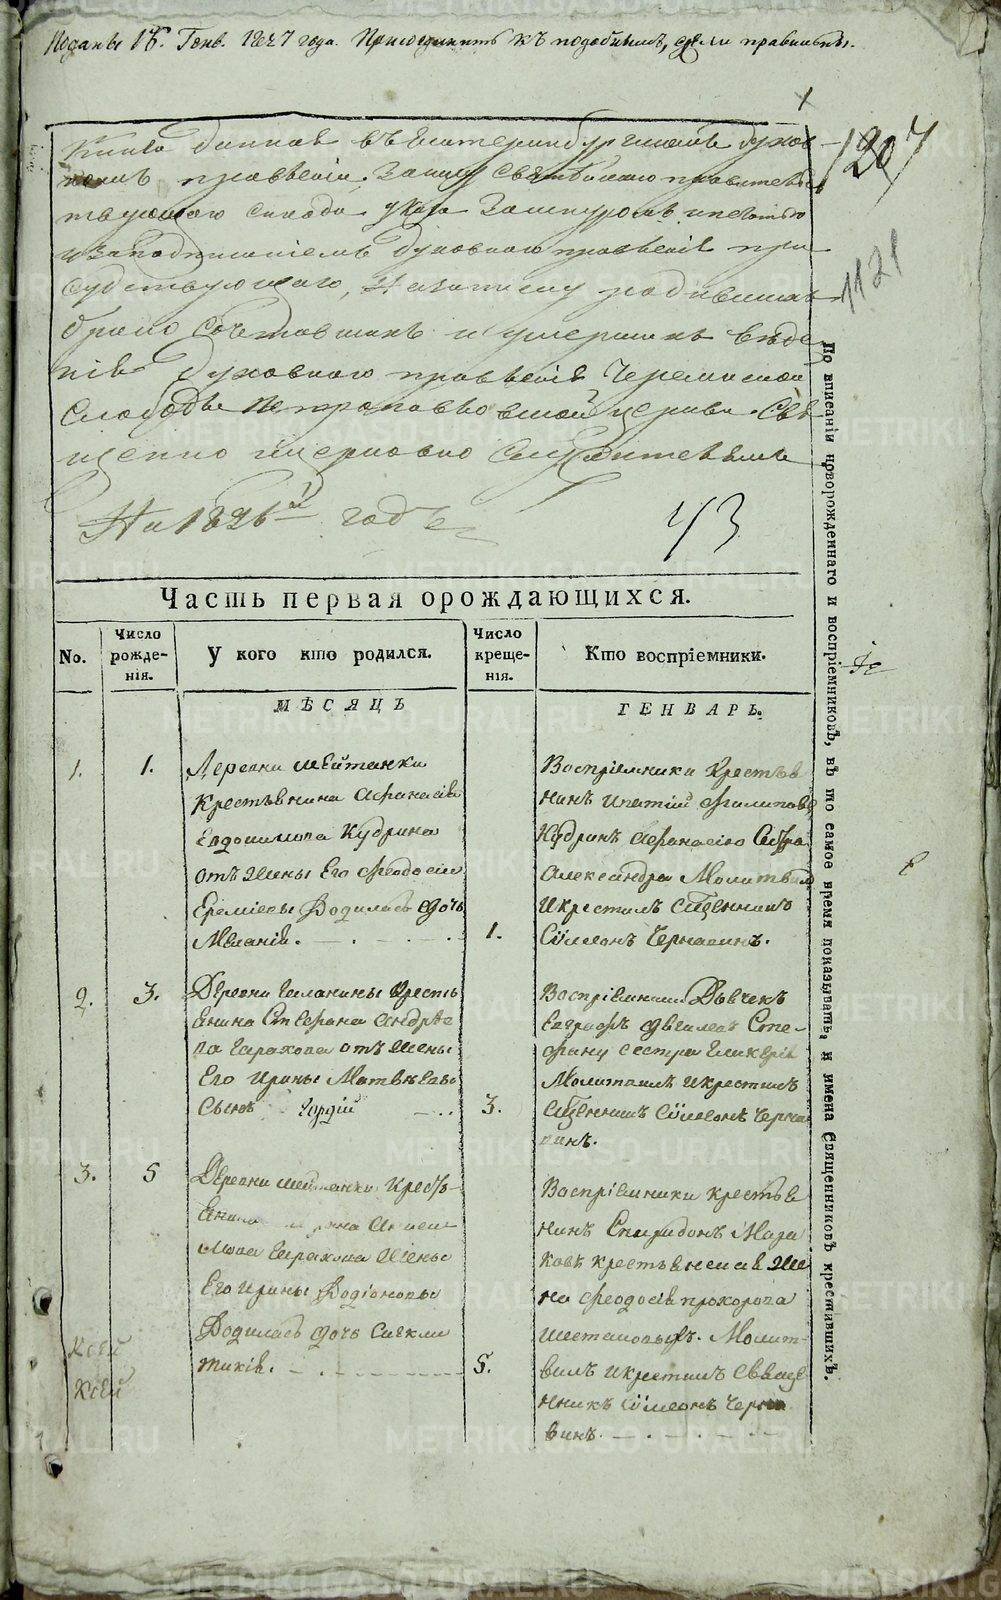 Поданы 18. Генв. 1827 года. Приобщить къ подобнымъ, если правильны.
1207
1121
Книга данная въ Екатеринбургскомъ духов
номъ правленіи, Святѣйшаго правитель
ствующаго Синода указа За шнуромъ и печатью
и заподписаніемъ духовнаго правленія при
судствующаго, На записку родившихся
брако сочетавшихся и умершихъ вѣде
нія духовнаго правленія Черемисской
Слободы Петропавловской церкви Свя
щенно церковно Служителямъ
На 1826й годъ
43
Часть первая орождающихся.
No. Число рожденія. У кого кто родился. Число крещенія. Кто воспріемники.
МѢСЯЦЪ ГЕНВАРЬ.
1. 1.
Деревни Шейтанки
Крестьянина Афанасія
Евдокимова Кудрина
отъ жены Его Феодосіи
Ереміевы Родилась дочь
Меланія.
1.
Воспріемники Крестья
нинъ Ипатій Филиповъ
Кудринъ Афанасію Сестра
Александра Молитвилъ
И крестилъ Сщенникъ
Сѵмеонъ Чернавинъ.
2. 3.
Деревни Крестья
янина Стефана Андрее
ва Шрахова отъ жены
Его Ирины Матвѣевы
Сынъ Гордій
3.
Воспріемники
Евграфъ Сте-
фану сестра Гликерія
Молитвилъ и крестилъ
Сщенникъ Сѵмеонъ Черна
винъ.
3. 5
Деревни Шейтанки Кресть-
янина
Шрахова Жены
Его Ирины Родіоновы
Родилась дочь Синкли
тикія.
5.
Воспріемники крестья
нинъ Спиридонъ Мака
ровъ крестьянская же
на Феодосія Прохорова
Шестаковыхъ. Молит-
вилъ и крестилъ Свяще
нникъ Сѵмеонъ Черна
винъ.
По вписаніи новорожденнаго и воспріемниковъ, въ то самое время показывать, и имена Священниковъ крестившихъ.
METRIKI.GASO-URAL.RU